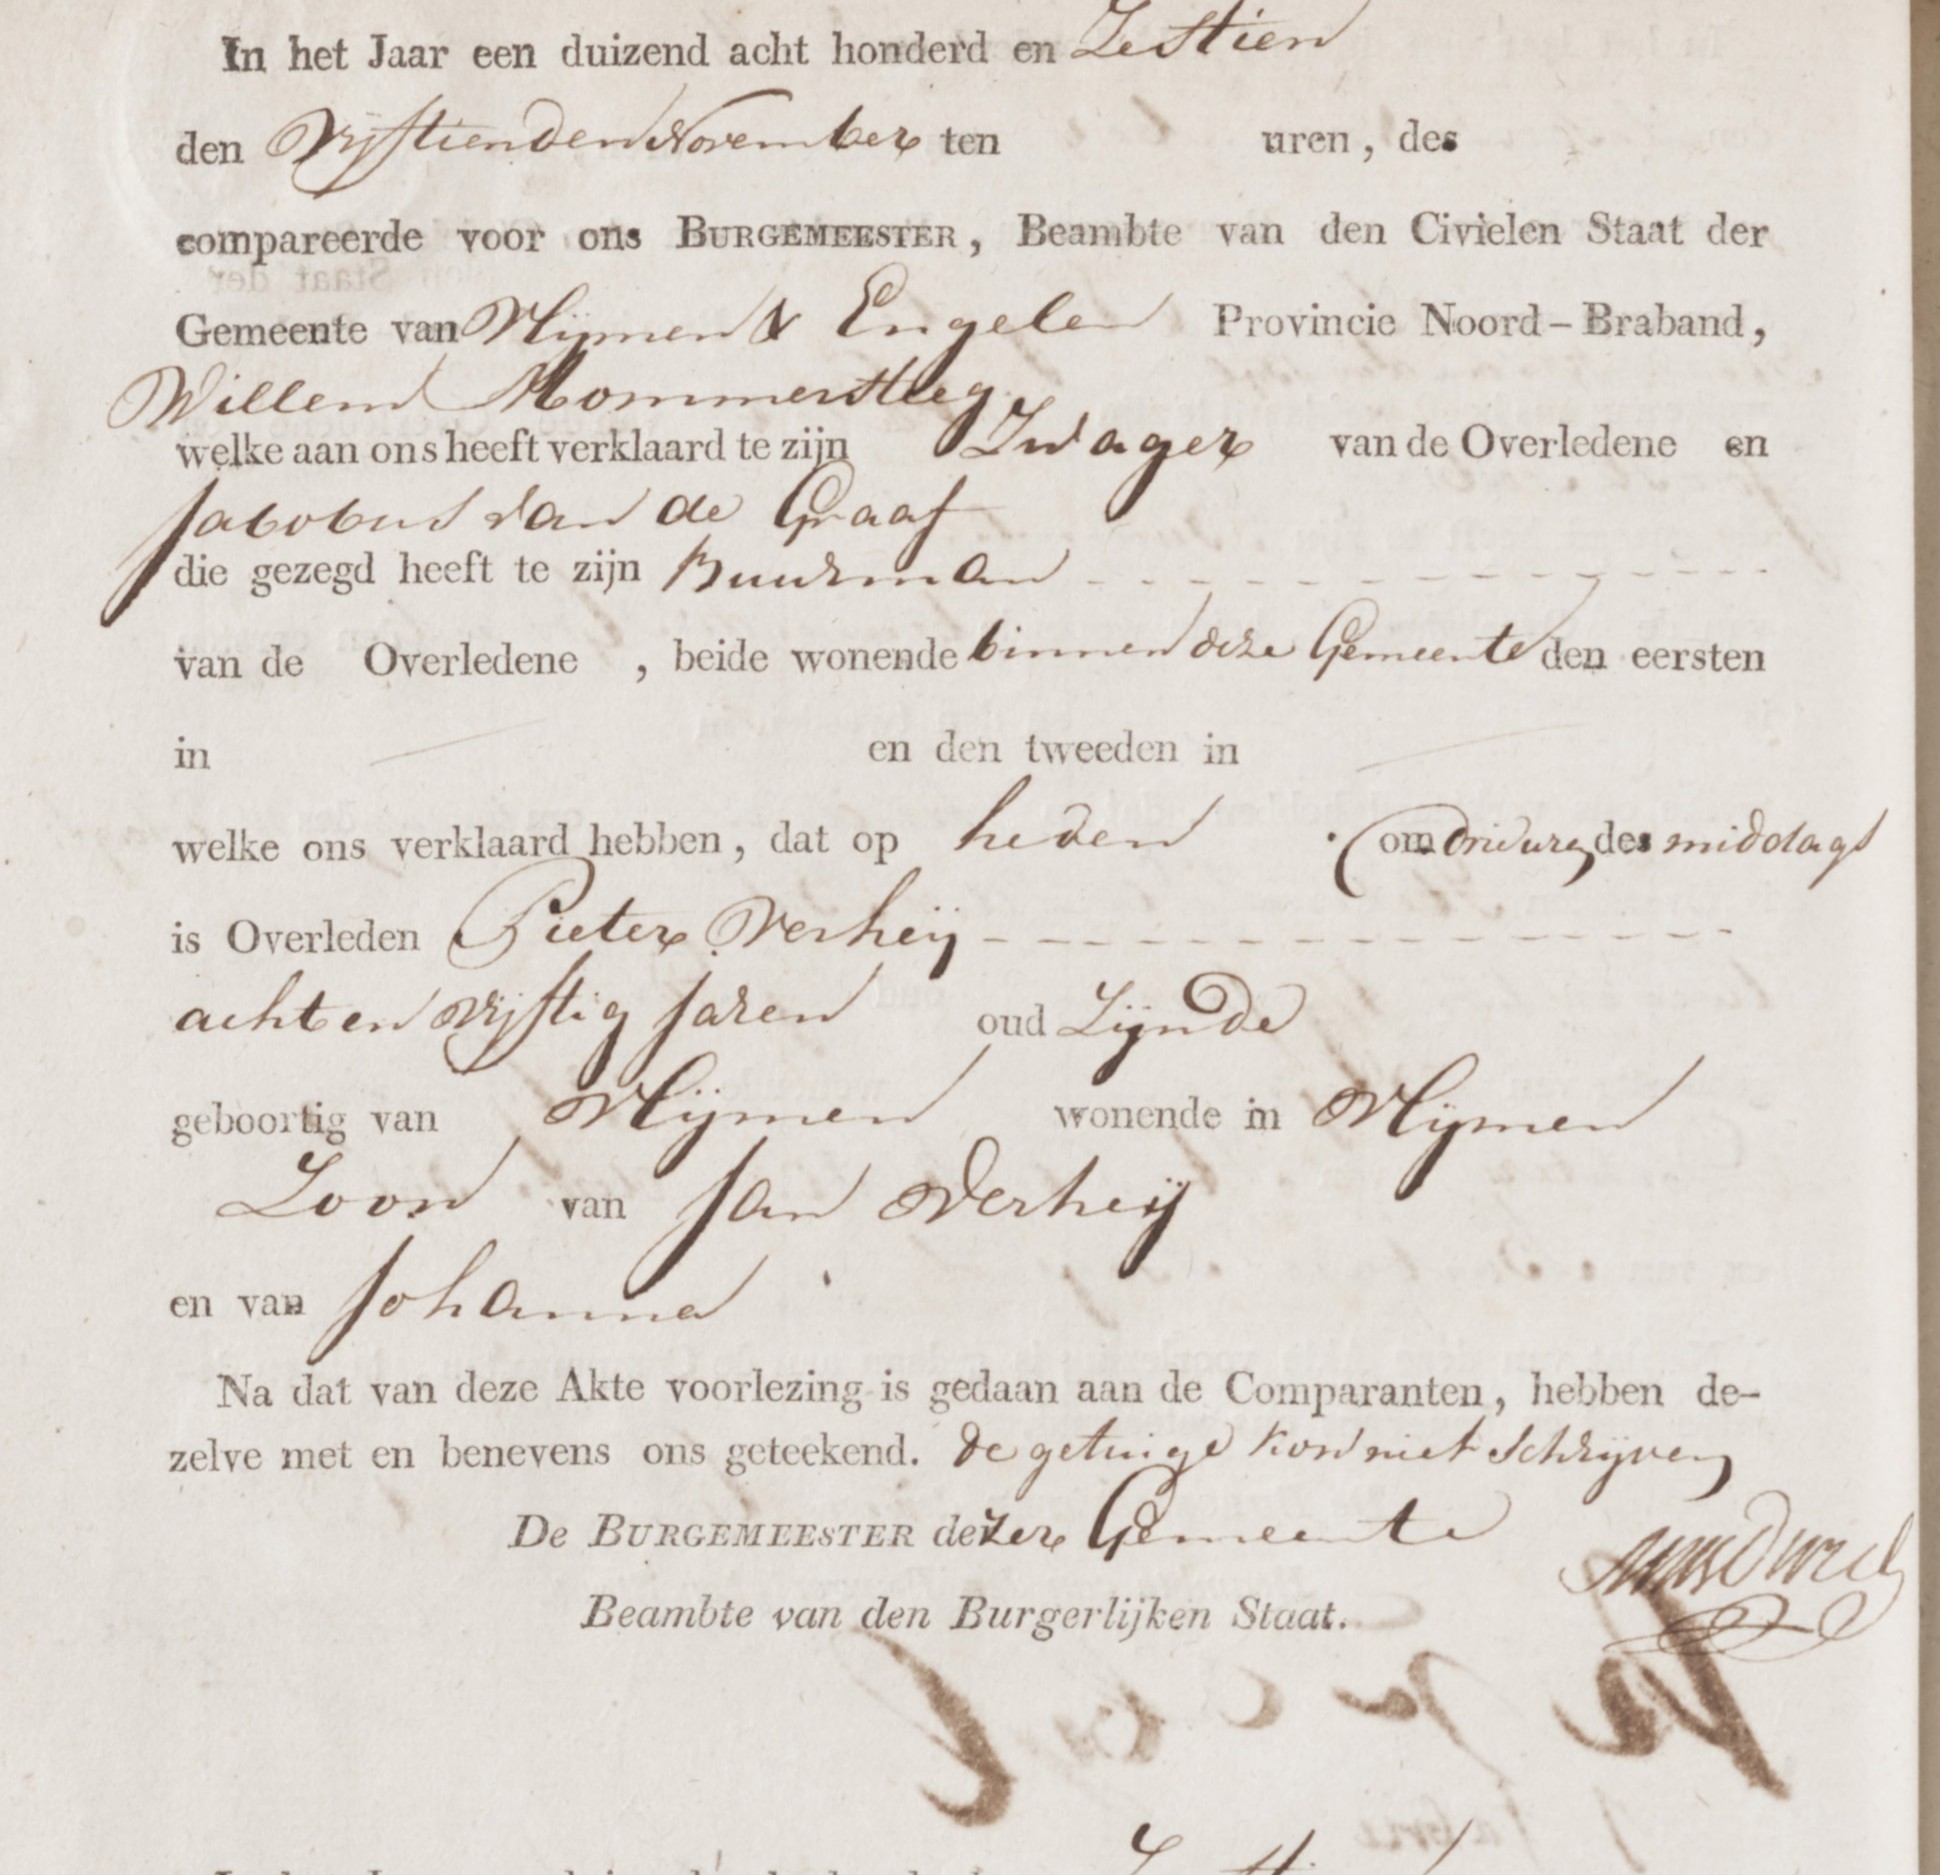 In het Jaar een duizend acht honderd en Zestien
den Vijftienden November ten uren, des
compareerde voor ons BURGEMEESTER, Beambte van den Civielen Staat der
Gemeente van Vlijmen & Engelen Provincie Noord-Braband,
Willem Mommersteeg
welke aan ons heeft verklaard te zijn Zwager van de Overledene en
Jacobus van de Graaf
die gezegd heeft te zijn Buurman
van de Overledene , beide wonende binnen deze Gemeente den eersten
in en den tweeden in
welke ons verklaard hebben, dat op heden om drie uren des middags
is Overleden Pieter Verheij
acht en vijftig Jaren oud Zijnde
geboortig van Vlijmen wonende in Vlijmen
Zoon van Jan Verheij
en van Johanna
Na dat van deze Akte voorlezing is gedaan aan de Comparanten, hebben de-
zelve met en benevens ons geteekend. de getuige kon niet Schrijven
De BURGEMEESTER dezer Gemeente
Beambte van den Burgerlijken Staat.